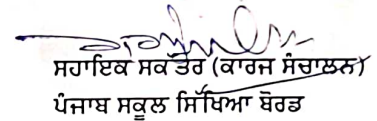 ਸਹਾਇਕ ਸਕੱਤਰ (ਕਾਰਜ ਸੰਚਾਲਨ)
ਪੰਜਾਬ ਸਕੂਲ ਸਿੱਖਿਆ ਬੋਰਡ